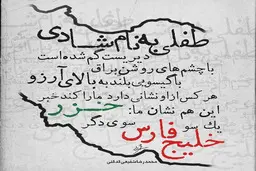 طفلی به نام شادی
دیریست گم شده است
با چشم‌های روشن براق
با گیسویی بلند به بالای آرزو
هر کس از او نشانی دارد ما را کند خبر
این هم نشان ما:
یک سو خلیج فارس
سوی دگر خزر
محمدرضا شفیعی کدکنی